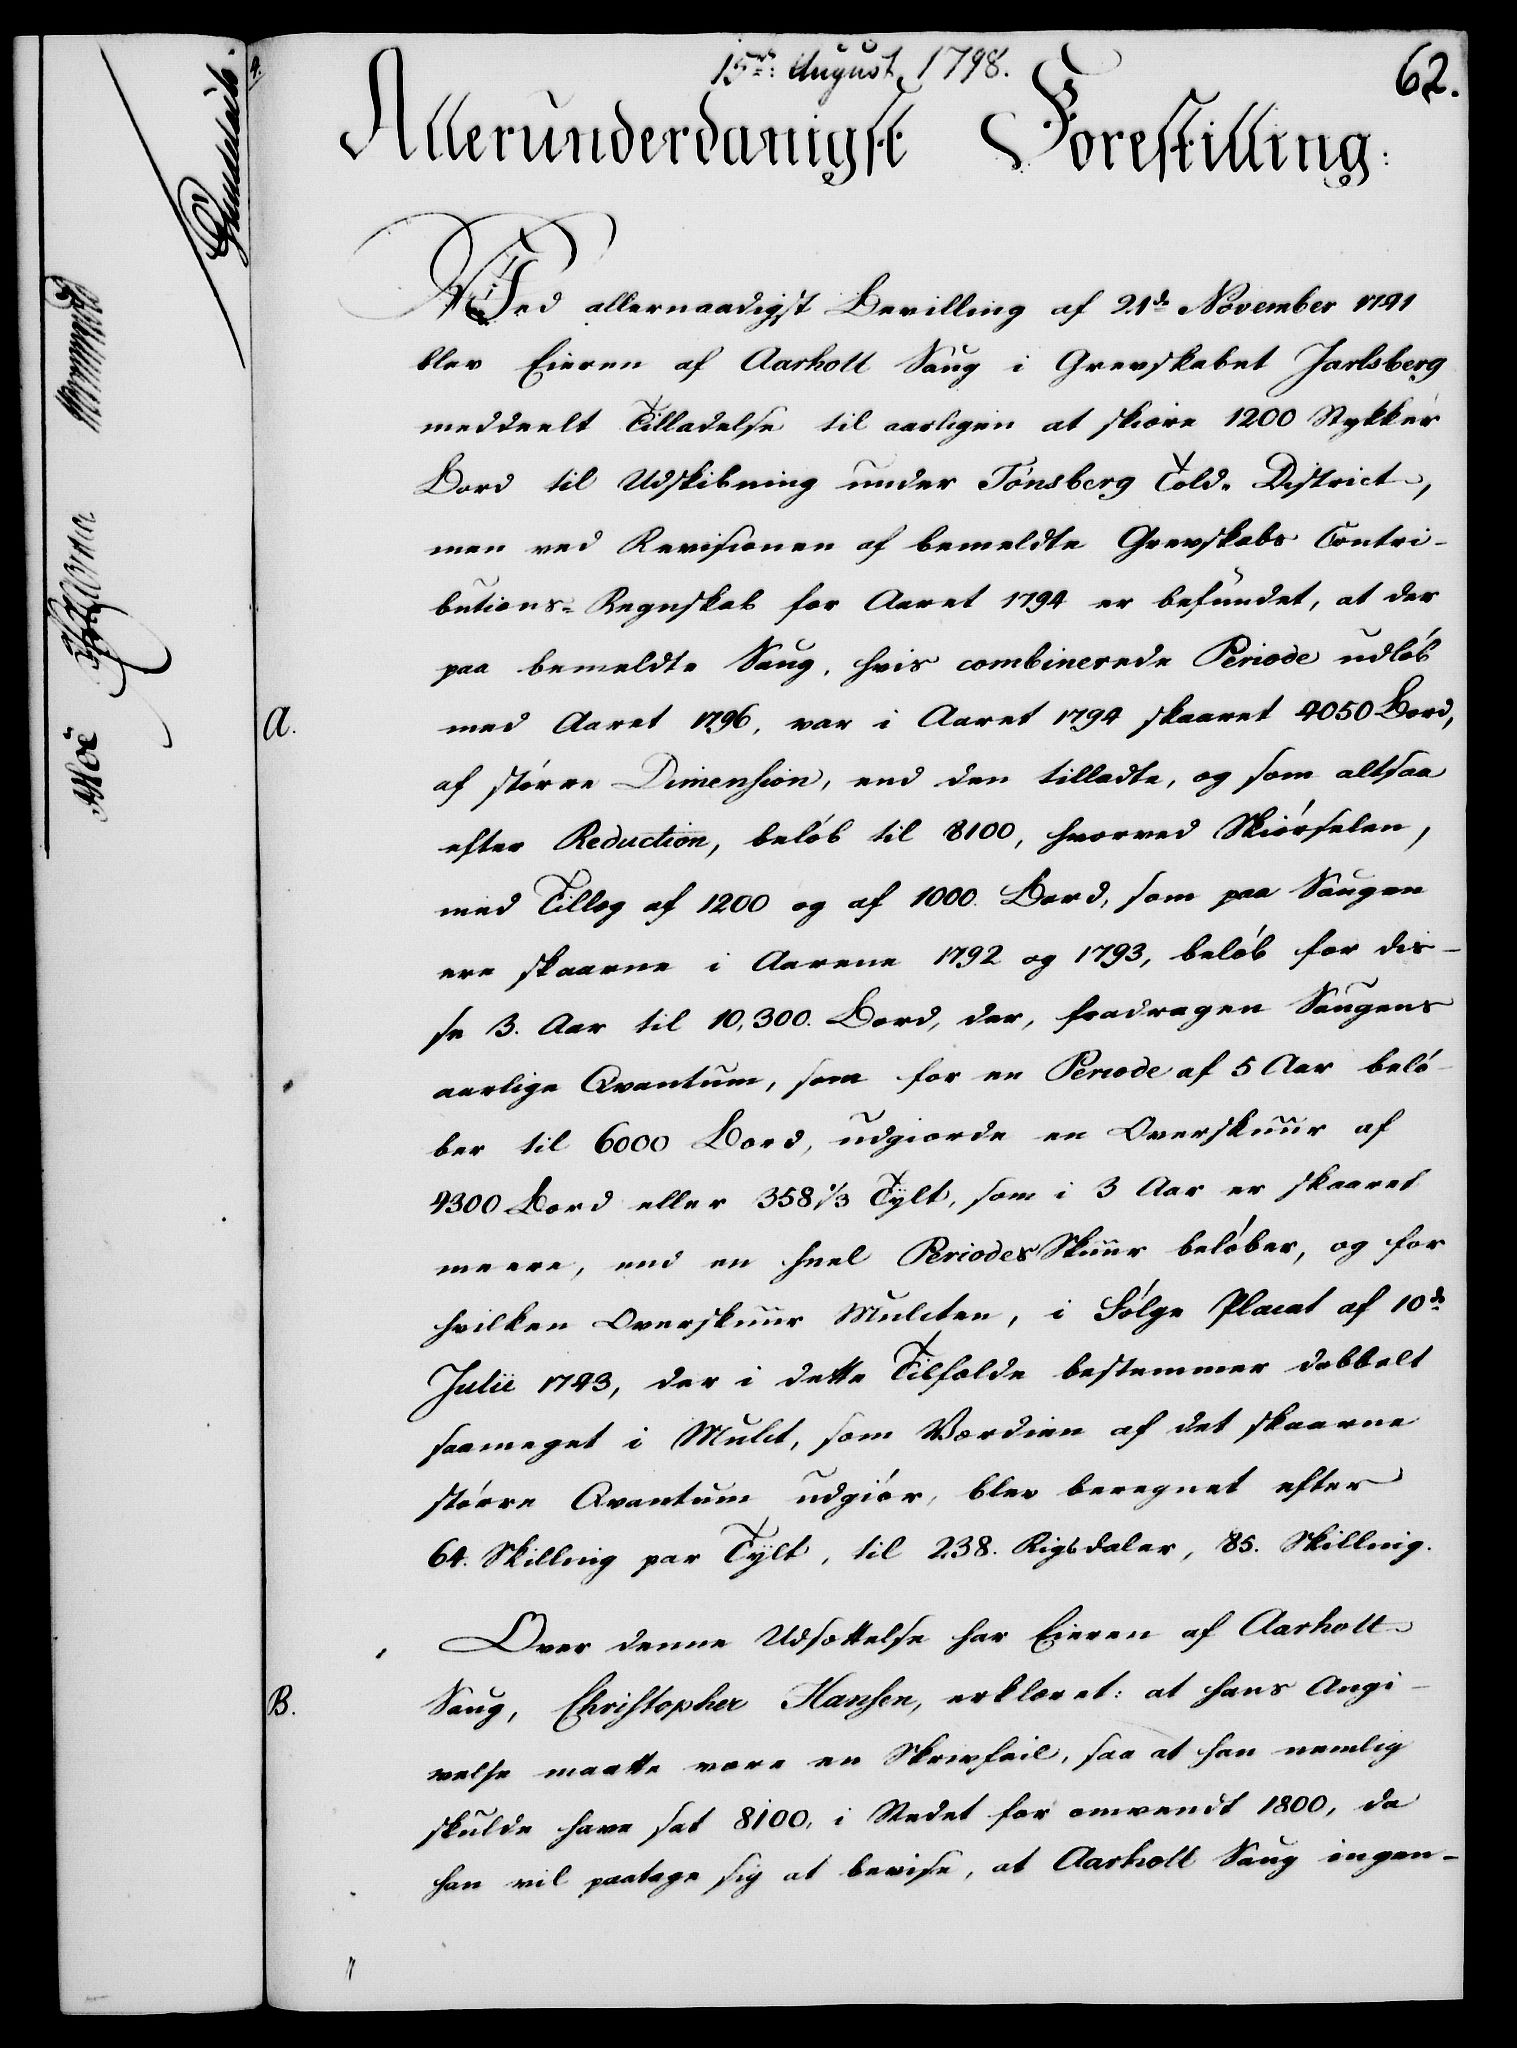 15de August, 1798.
62.
Allerunderdanigst Forestilling:
Ved allernaadigst Bevilling af 21de November 1791
blev Eieren af Aarholt Saug i Grevskabet Jarlsberg
meddeelt Tilladelse til aarligen at skiære 1200 Stykker
Bord til Udskibning under Tønsberg Told- District,
men ved Revisionen af bemeldte Grevskabs Contri-
butions-Regnskab for Aaret 1794 er befundet, at der
paa bemeldte Saug, hvis combinerede Periode udløb
A.
med Aaret 1796, var i Aaret 1794 skaaret 4050 Bord,
af større Dimension, end den tilladte, og som altsaa
efter Reduction, beløb til 8100, hvorved Skiørselen,
med Tillæg af 1200 og af 1000 Bord, som paa Saugen
ere skaarne i Aarene 1792 og 1793, beløb for dis-
se 3. Aar til 10,300. Bord, der, fradragen Saugens
aarlige Qvantum, som for en Periode af 5 Aar belø-
ber til 6000 Bord, udgiorde en Overskuur af
4300 Bord eller 358 1/3 Tylt, som i 3 Aar er skaaret
meere, end en heel Periodes Skuur beløber, og for
hvilken Overskuur Mulcten, i Følge Placat af 10de
Julii 1793, der i dette Tilfælde bestemmer dobbelt
saameget i Mulct, som Værdien af det skaarne
større Qvantum udgiør, blev beregnet efter
64. Skilling par Tylt, til 238. Rigsdaler, 85. Skilling.
Over denne Udsættelse har Eieren af Aarholt
B.
Saug, Christopher Hansen, erklæret: at hans Angi-
velse maatte være en Skrivfeil, saa at han nemlig
skulde have sat 8100, i Stedet for omvendt 1800, da
han vil paatage sig at bevise, at Aarholt Saug ingen-